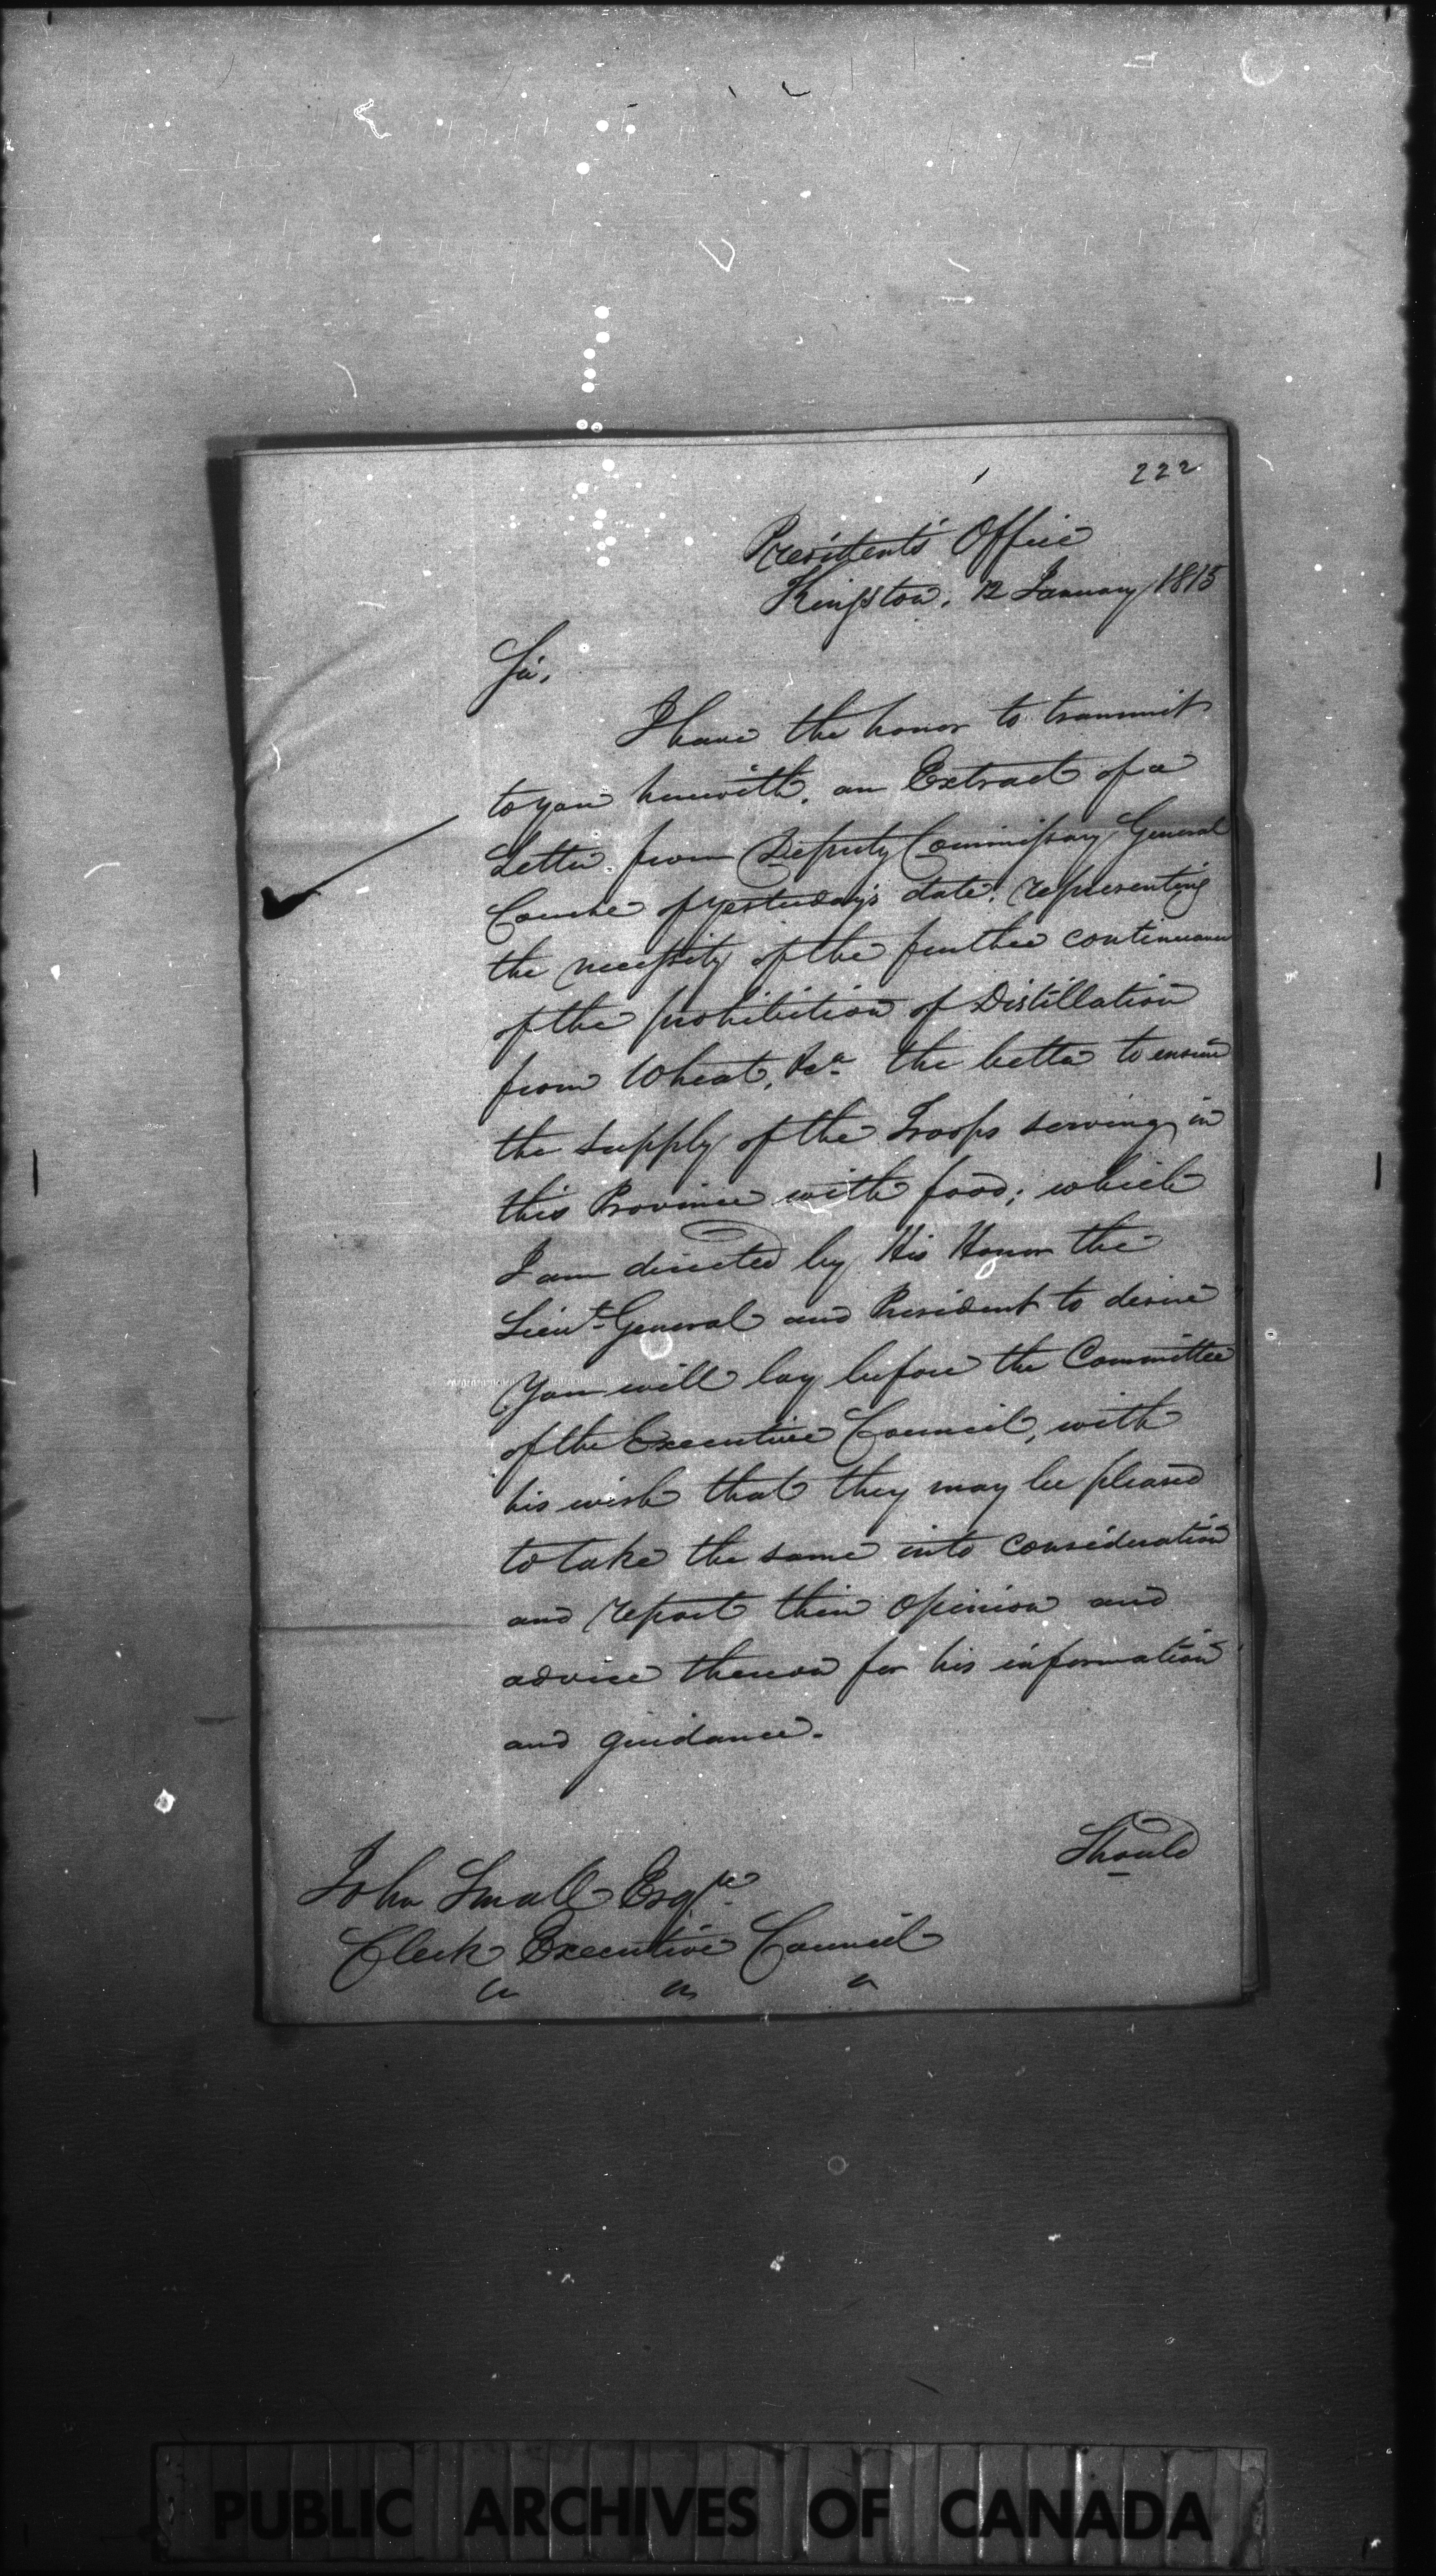 222
Presidents Office
Kingston, 12 January 1815
Sir,
I have the honor to transmit
to you herewith, an Extract of a
Letter from Deputy Commissary General
Couche of yesterday's date, representing
the necessity of the further continuance
of the prohibition of Distillation
from Wheat, &ca the better to ensure
the supply of the Troops serving in
this Province with food; which
I am directed by His Honor the
Lieut. General and President to desire
you will lay before the Committee
of the Executive Council, with
his wish that they may be pleased
to take the same into consideration
and report their opinion and
advice thereon for his information
and guidance.
Should
John Small Esqre
Clerk Executive Council
PUBLIC ARCHIVES OF CANADA